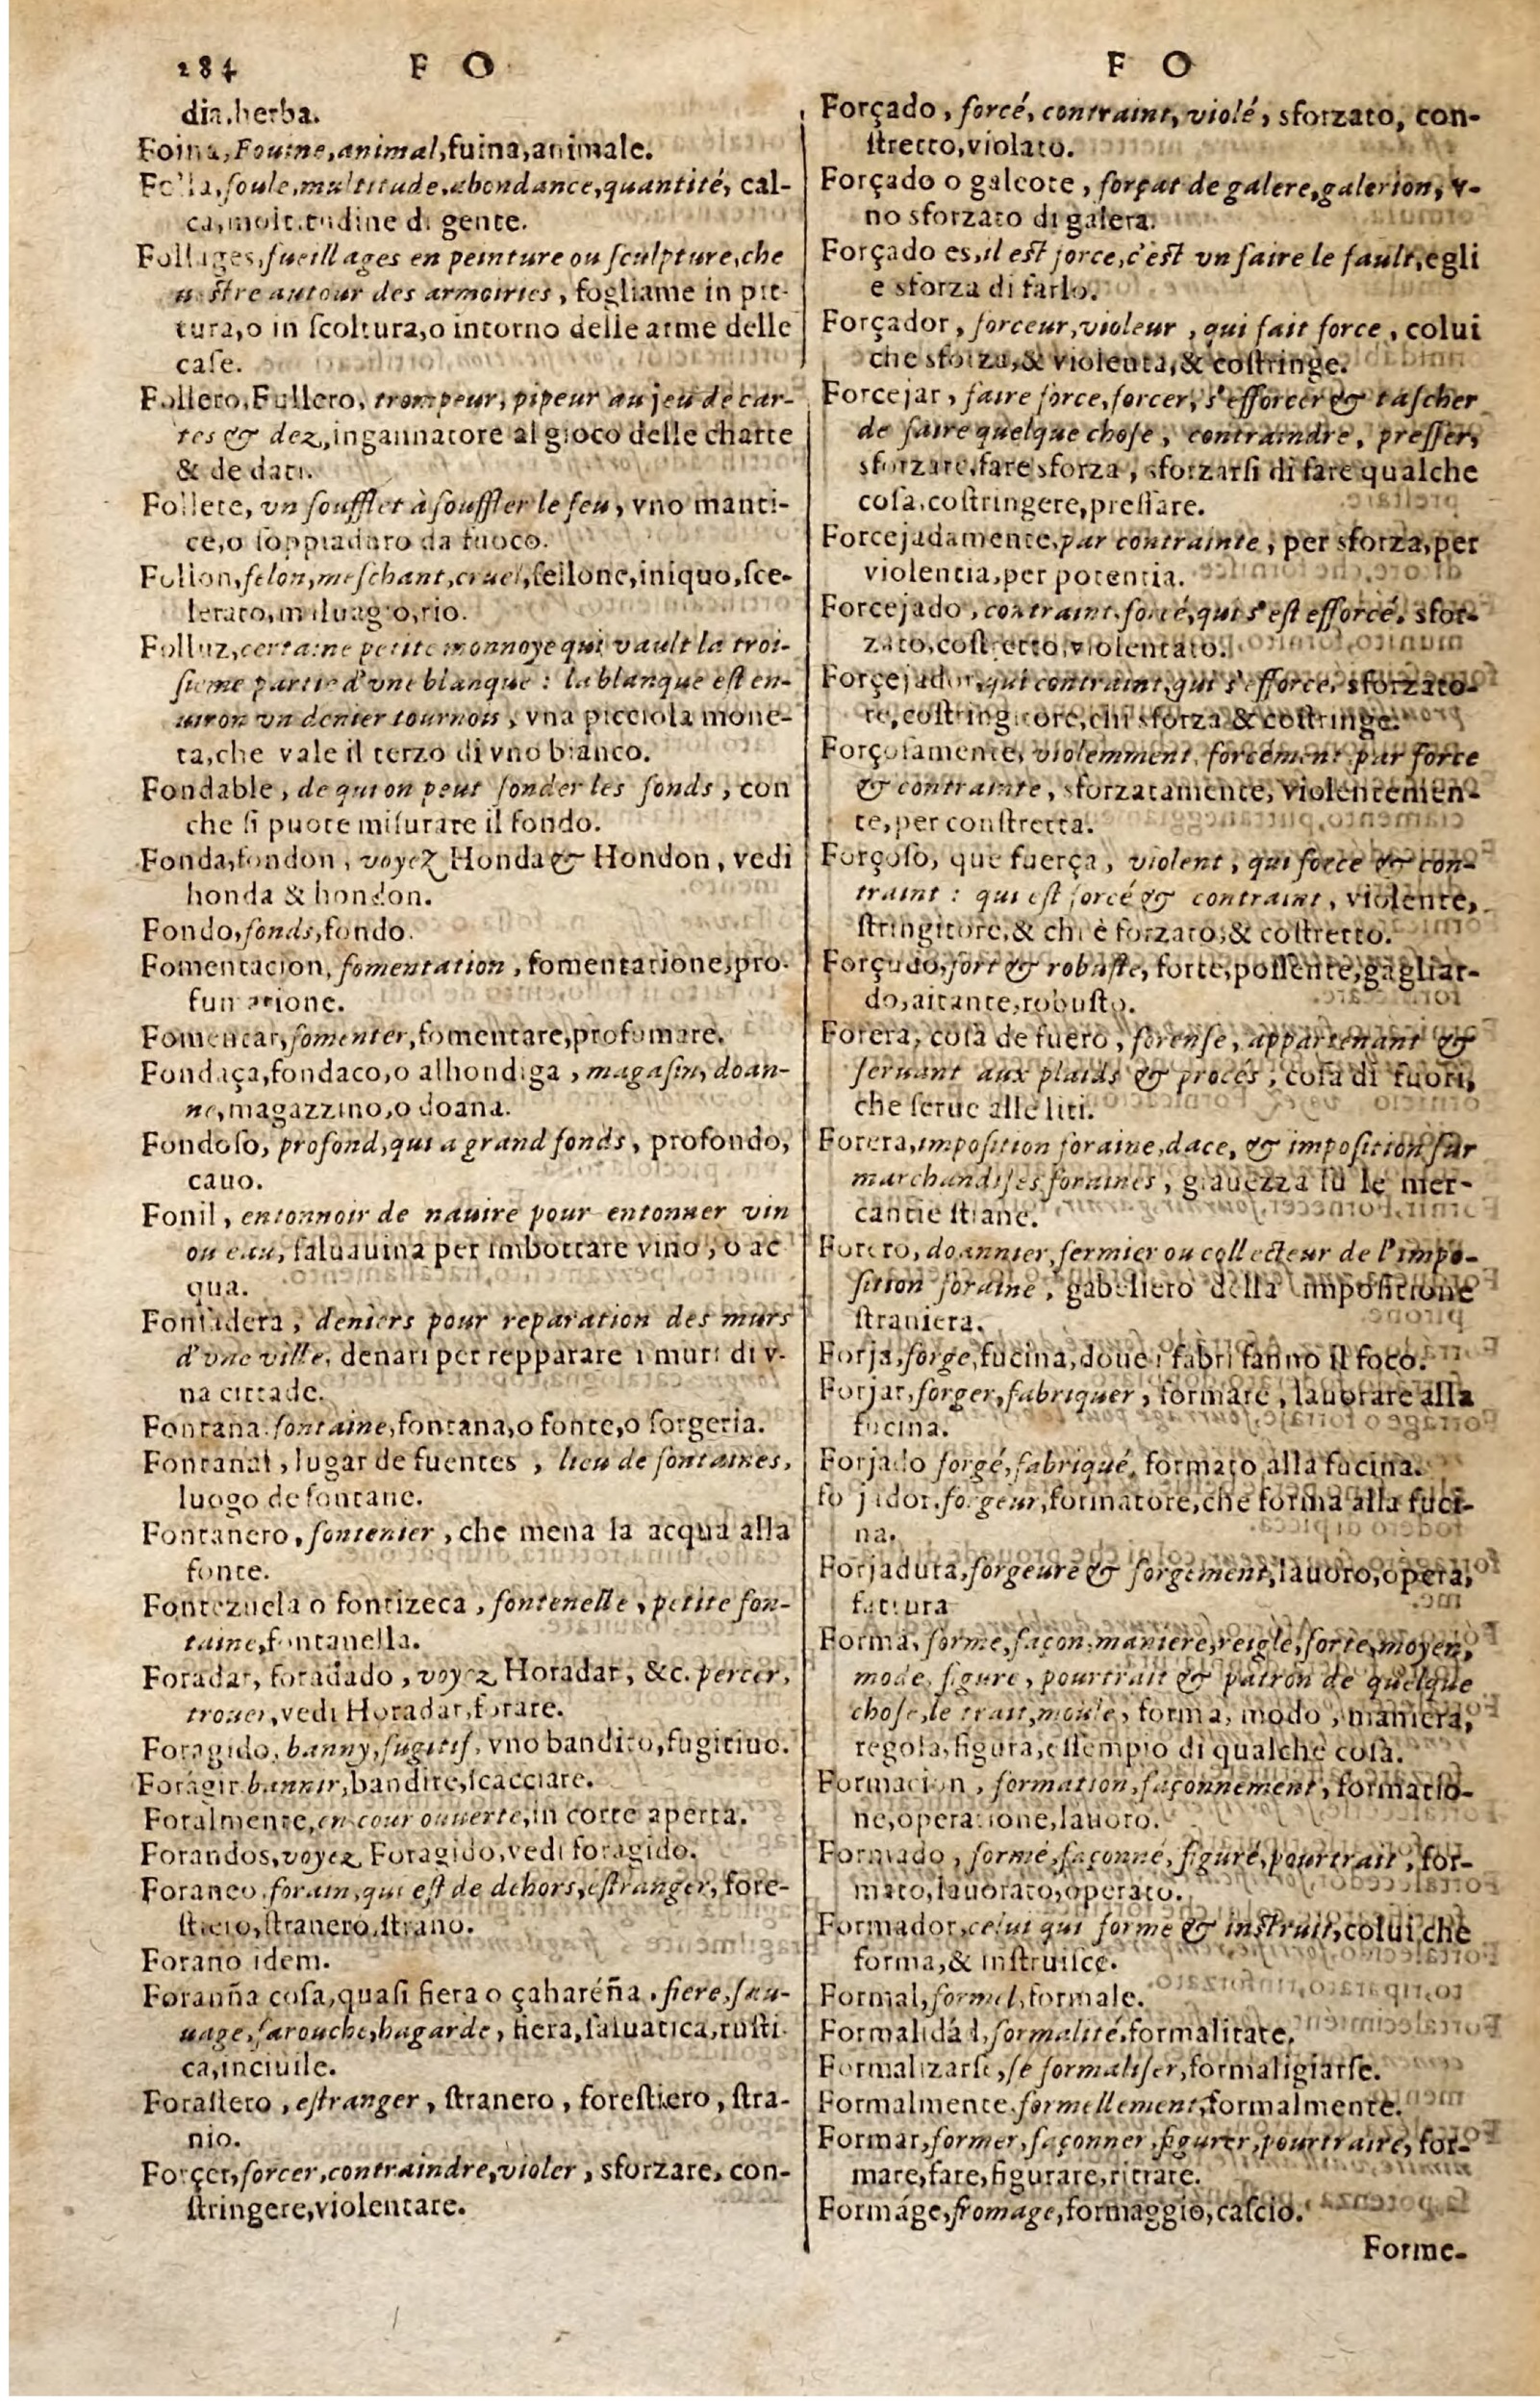 284 F O
F O
dia, herba.
Foina, Fouine, animal, fuina, animale.
Folla, foule, multitude, abondance, quantité, cal-
ca, moltitudine di gente.
Follages, fueillages en peinture ou ſculpture, che
autour des armoiries, fogliame in pit-
tura, o in ſcoltura, o intorno delle arme delle
caſe.
Follero, Fullero, trompeur, pipeur au jeu de car-
tes & dez, ingannatore al gioco delle charte
& de dati.
Follete, vn ſoufflet à ſouffler le feu, vno manti-
ce, o da fuoco.
Follon, felon, meſchant, cruel, fellone, iniquo, ſce-
lerato, maluagio, rio.
Folluz, certaine petite monnoye qui vault la troi-
ſieme partie d'vne blanque : la blanque eſt en-
uiron vn denier tournois, vna picciola mone-
ta, che vale il terzo di vno bianco.
Fondable, de qui on peut ſonder les fonds, con
che ſi puote miſurare il fondo.
Fonda, fondon, voyez Honda & Hondon, vedi
honda & hondon.
Fondo, fonds, fondo.
Fomentacion, fomentation, fomentatione, pro-
fumatione.
Fomentar, fomenter, fomentare, profumare.
Fondaça, fondaco, o alhondiga, magaſin, doan-
ne, magazzino, o doana.
Fondoſo, profond, qui a grand fonds, profondo,
cauo.
Fonil, entonnoir de nauire pour entonner vin
ou eau, ſaluauina per imbottare vino, o ac
qua.
Fonſadera, deniers pour reparation des murs
d'vne ville, denari per repparare i muri di v-
na cittade.
Fontana. fontaine, fontana, o fonte, o ſorgeria.
Fontanal, lugar de fuentes, lieu de fontaines,
luogo de fontane.
Fontanero, fontenier, che mena la acqua alla
fonte.
Fontezuela o fontizeca, fontenelle, petite fon-
taine, fontanella.
Foradar, foradado, voyez Horadar, &c. percer,
trouer, vedi Horadar, forare.
Foragido, banny, fugitif, vno bandito, fugitiuo.
Foragir bannir, bandire, ſcacciare.
Foralmente, en cour ouuerte, in corte aperta.
Forandos, voyez Foragido, vedi foragido.
Foraneo, forain, qui eſt de dehors, eſtranger, fore-
ſtiero, ſtranero, ſtrano.
Forano idem.
Foranña coſa, quaſi fiera o çahareña, fiere, ſau-
uage, farouche, hagarde, fiera, ſaluatica, ruſti-
ca, inciuile.
Foraſtero, eſtranger, ſtranero, foreſtiero, ſtra-
nio.
Forçer, forcer, contraindre, violer, sforzare, con-
ſtringere, violentare.
Forçado, forcé, contraint, violé, sforzato, con-
ſtretto, violato.
Forçado o galeote, forçat de galere, galerion, v-
no sforzato di galera.
Forçado es, il eſt force, c'eſt vn faire le fault, egli
e sforza di farlo.
Forçador, forceur, violeur, qui fait force, colui
che sforza, & violenta, & coſtringe.
Forcejar, faire force, forcer, s'efforcer & taſcher
de faire quelque choſe, contraindre, preſſer,
sforzare, fare sforza, sforzarſi di fare qualche
coſa, coſtringere, preſſare.
Forcejadamente, par contrainte, per sforza, per
violentia, per potentia.
Forcejado, contraint, forcé, qui s'eſt efforcé, sfor-
zato, coſtretto, violentato.
Forçejador, qui contraint, qui s'efforce, sforzato-
re, coſtringitore, chi sforza & coſtringe.
Forçoſamente, violemment, forcément, par force
& contrainte, sforzatamente, violentemen-
te, per conſtretta.
Forçoſo, que fuerça, violent, qui force & con-
traint : qui eſt forcé & contraint, violente,
ſtringitore, & chi è forzato, & coſtretto.
Forçudo, fort & robuſte, forte, poſſente, gagliar-
do, aitante, robuſto.
Forera, coſa de fuero, forenſe, appartenant &
ſeruant aux plaids & procés, coſa di fuori,
che ſerue alle liti.
Forera, impoſition foraine, dace, & impoſition ſur
marchandiſes foraines, grauezza ſu le mer-
cantie ſtrane.
Forero, doannier, fermier ou collecteur de l'impo-
ſition foraine, gabeliero della impoſitione
ſtraniera.
Forja, forge, fucina, doue i fabri fanno il foco.
Forjar, forger, fabriquer, formare, lauorare alla
fucina.
Forjado forgé, fabriqué, formato alla fucina.
forjador, forgeur, formatore, che forma alla fuci-
na.
Forjadura, forgeure & forgement, lauoro, opera,
fattura
Forma, forme, façon, maniere, reigle, ſorte, moyen,
mode, figure, pourtrait & patron de quelque
choſe, le trait, moule, forma, modo, maniera,
regola, figura, eſſempio di qualche coſa.
Formacion, formation, façonnement, formatio-
ne, operatione, lauoro.
Formado, formé, façonné, figuré, pourtrait, for-
mato, lauorato, operato.
Formador, celui qui forme & inſtruit, colui che
forma, & inſtruiſce.
Formal, formel, formale.
Formalidád, formalité, formalitate.
Formalizarſe, ſe formaliſer, formaligiarſe.
Formalmente. formellement, formalmente.
Formar, former, façonner, figurer, pourtraire, for-
mare, fare, figurare, ritrare.
Formáge, fromage, formaggio, caſcio.
Forme-